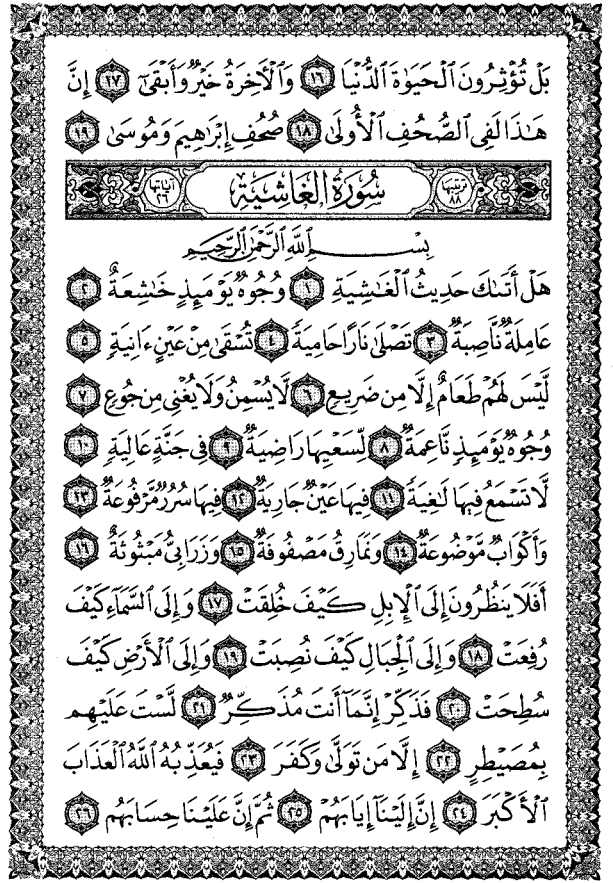 بَلْ تُؤْثِرُونَ ٱلْحَيَوٰةَ ٱلدُّنْيَا ١٦ وَٱلْأَخِرَةُ خَيْرٌ وَأَبْقَىٰٓ ١٧ إِنَّ
هَٰذَا لَفِى ٱلصُّحُفِ ٱلْأُولَىٰ ١٨ صُحُفِ إِبْرَٰهِيمَ وَمُوسَىٰ ١٩
ترتيبها ٨٨ سُورَةُ الغَاشِيَةِ آياتها ٢٦
بِسْمِ ٱللَّهِ ٱلرَّحْمَٰنِ ٱلرَّحِيمِ
هَلْ أَتَىٰكَ حَدِيثُ ٱلْغَٰشِيَةِ ١ وُجُوهٌ يَوْمَئِذٍ خَٰشِعَةٌ ٢
عَامِلَةٌ نَّاصِبَةٌ ٣ تَصْلَىٰ نَارًا حَامِيَةً ٤ تُسْقَىٰ مِنْ عَيْنٍ ءَانِيَةٍ ٥
لَّيْسَ لَهُمْ طَعَامٌ إِلَّا مِن ضَرِيعٍ ٦ لَّا يُسْمِنُ وَلَا يُغْنِى مِن جُوعٍ ٧
وُجُوهٌ يَوْمَئِذٍ نَّاعِمَةٌ ٨ لِّسَعْيِهَا رَاضِيَةٌ ٩ فِى جَنَّةٍ عَالِيَةٍ ١٠
لَّا تَسْمَعُ فِيهَا لَٰغِيَةً ١١ فِيهَا عَيْنٌ جَارِيَةٌ ١٢ فِيهَا سُرُرٌ مَّرْفُوعَةٌ ١٣
وَأَكْوَابٌ مَّوْضُوعَةٌ ١٤ وَنَمَارِقُ مَصْفُوفَةٌ ١٥ وَزَرَابِىُّ مَبْثُوثَةٌ ١٦
أَفَلَا يَنظُرُونَ إِلَى ٱلْإِبِلِ كَيْفَ خُلِقَتْ ١٧ وَإِلَى ٱلسَّمَآءِ كَيْفَ
رُفِعَتْ ١٨ وَإِلَى ٱلْجِبَالِ كَيْفَ نُصِبَتْ ١٩ وَإِلَى ٱلْأَرْضِ كَيْفَ
سُطِحَتْ ٢٠ فَذَكِّرْ إِنَّمَآ أَنتَ مُذَكِّرٌ ٢١ لَّسْتَ عَلَيْهِم
بِمُصَيْطِرٍ ٢٢ إِلَّا مَن تَوَلَّىٰ وَكَفَرَ ٢٣ فَيُعَذِّبُهُ ٱللَّهُ ٱلْعَذَابَ
ٱلْأَكْبَرَ ٢٤ إِنَّ إِلَيْنَآ إِيَابَهُمْ ٢٥ ثُمَّ إِنَّ عَلَيْنَا حِسَابَهُم ٢٦